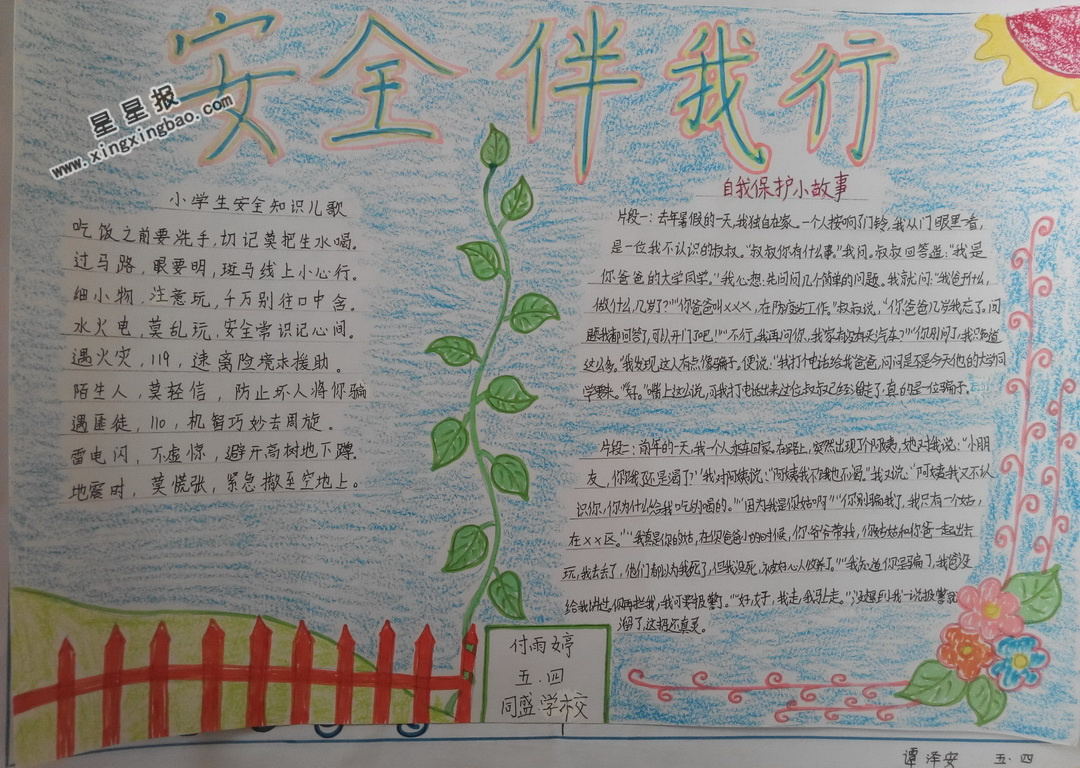 安全伴我行
星星报
www.xingxingbao.com
小学生安全知识儿歌
吃饭之前要洗手,切记莫把生水喝。
过马路,眼要明,斑马线上小心行。
细小物,注意玩,千万别往口中含。
水火电,莫乱玩,安全常识记心间。
遇火灾,119,速离险境求援助。
陌生人,莫轻信,防止坏人将你骗
遇匪徒,110,机智巧妙去周旋。
雷电闪,不虚惊,避开高树地下蹲。
地震时,莫慌张,紧急撤至空地上。
自我保护小故事
片段一:去年暑假的一天,我独自在家。一个人按响了门铃,我从门眼里一看,
是一位我不认识的叔叔。“叔叔你有什么事。”我问。叔叔回答道:“我是
你爸爸的大学同学。”我心想:先问问几个简单的问题。我就问:“我爸叫什么,
做什么,几岁了?”“你爸爸叫×××,在防疫站工作。”叔叔说,“你爸爸几岁我忘了。问
题我都回答了,可以开门了吧!”“不行,我再问你,我家有没有买汽车?”“你别问了,我只知道
这么多。”我发现这人有点像骗子。便说:“我打个电话给我爸爸,问问是不是今天他的大学同
学要来。”“好。”嘴上这么说,可我打电话出来这位叔叔已经溜走了,真的是一位骗子。
片段二:前年的一天,我一个人乘车回家,在路上,突然出现了个阿姨,她对我说:“小朋
友,你饿还是渴了?”我对阿姨说:“阿姨我不饿也不渴。”我又说:“阿姨我又不认
识你,你为什么给我吃的喝的。”“因为我是你姑啊”“你别骗我了,我只有一个姑,
在××区。”“我真是你的姑,在你爸爸小的时候,你爷爷带我,你姑姑和你爸一起出去
玩,我去丢了,他们都以为我死了,但我没死,被好心人收养了。”“我知道你是骗了,我爸没
给我讲过,你再拦我,我可要报警了。”“好,好子,我走,我马上走。”没想到我一说报警就
溜了,这招还真灵。
付雨婷
五.四
同盛学校
谭泽安 五.四